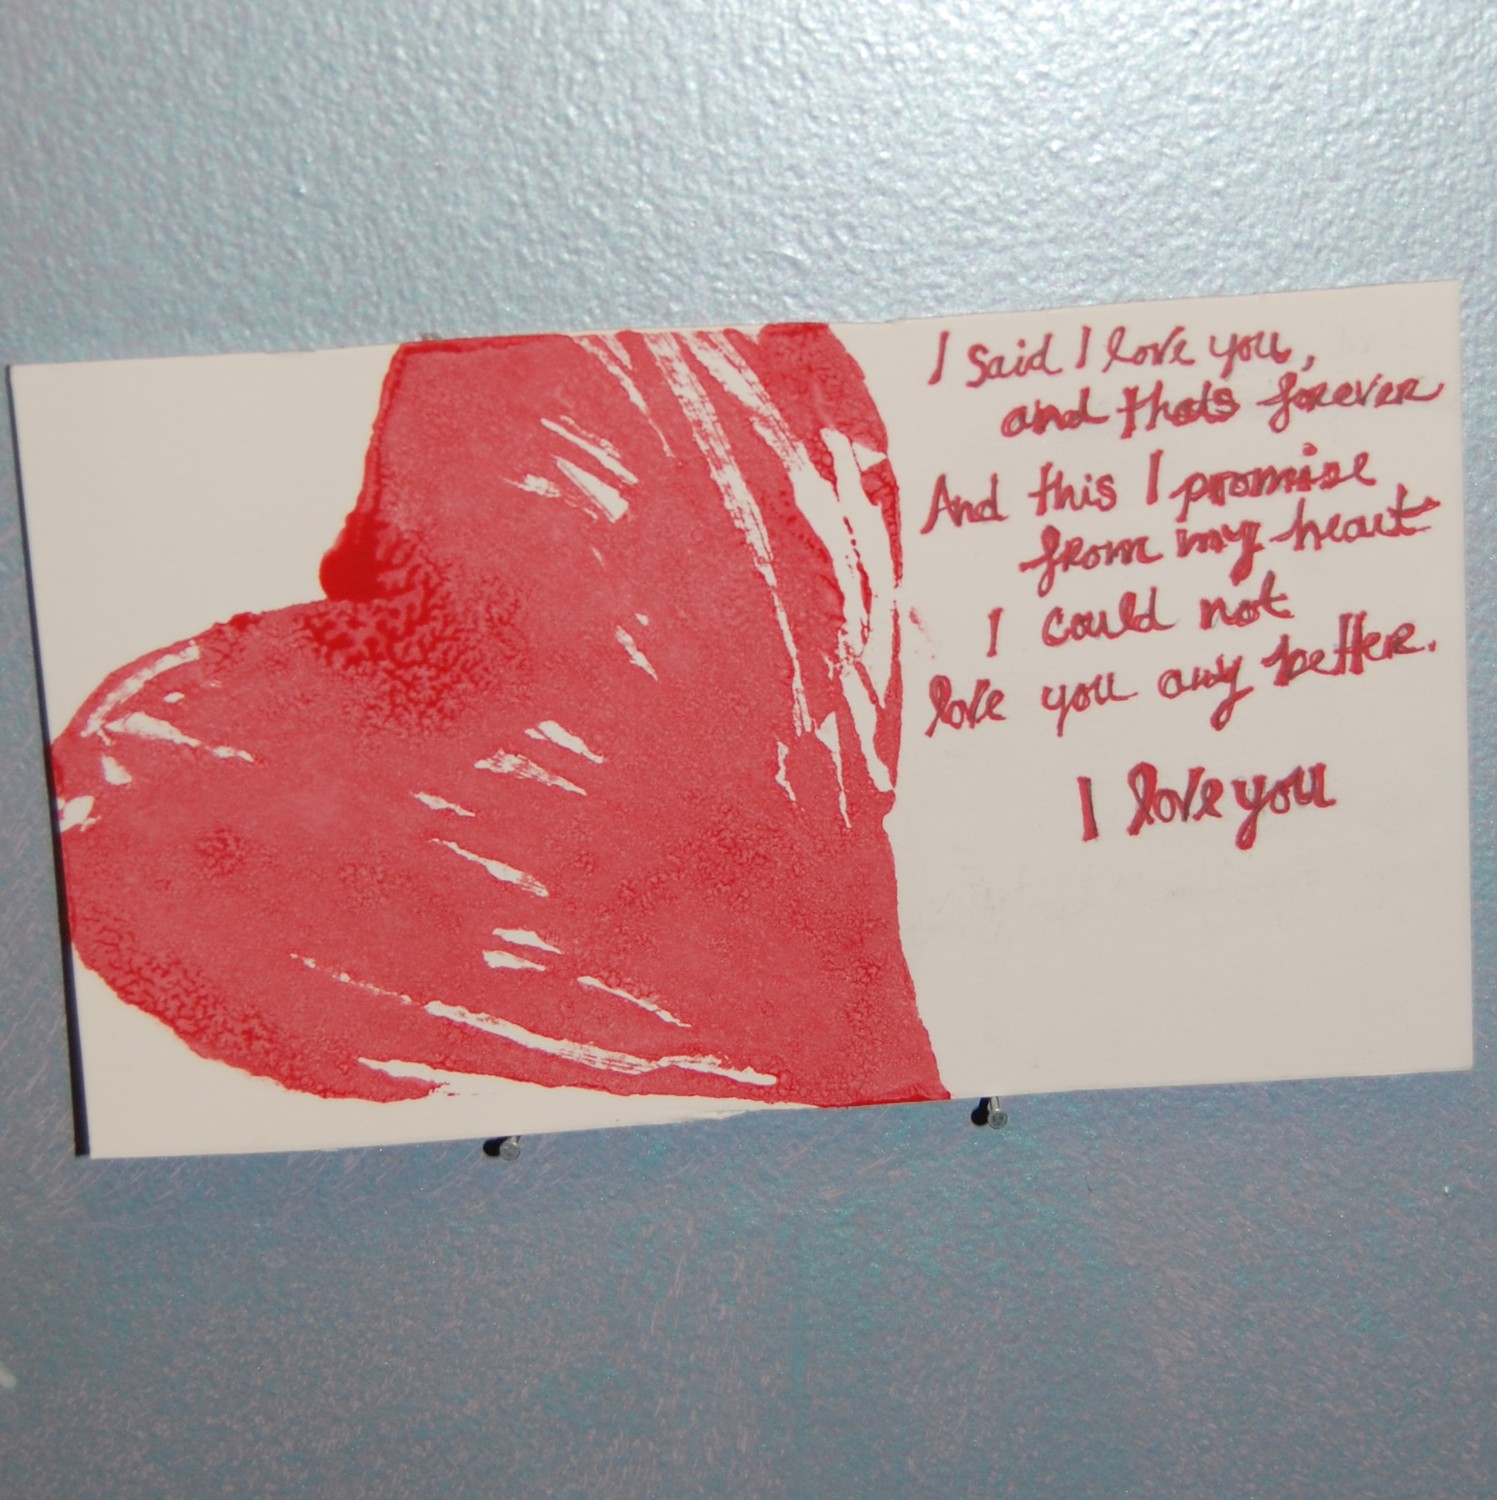 I said I love you,
and thats forever
And this I promise
from my heart
I could not
love you any better.
I love you